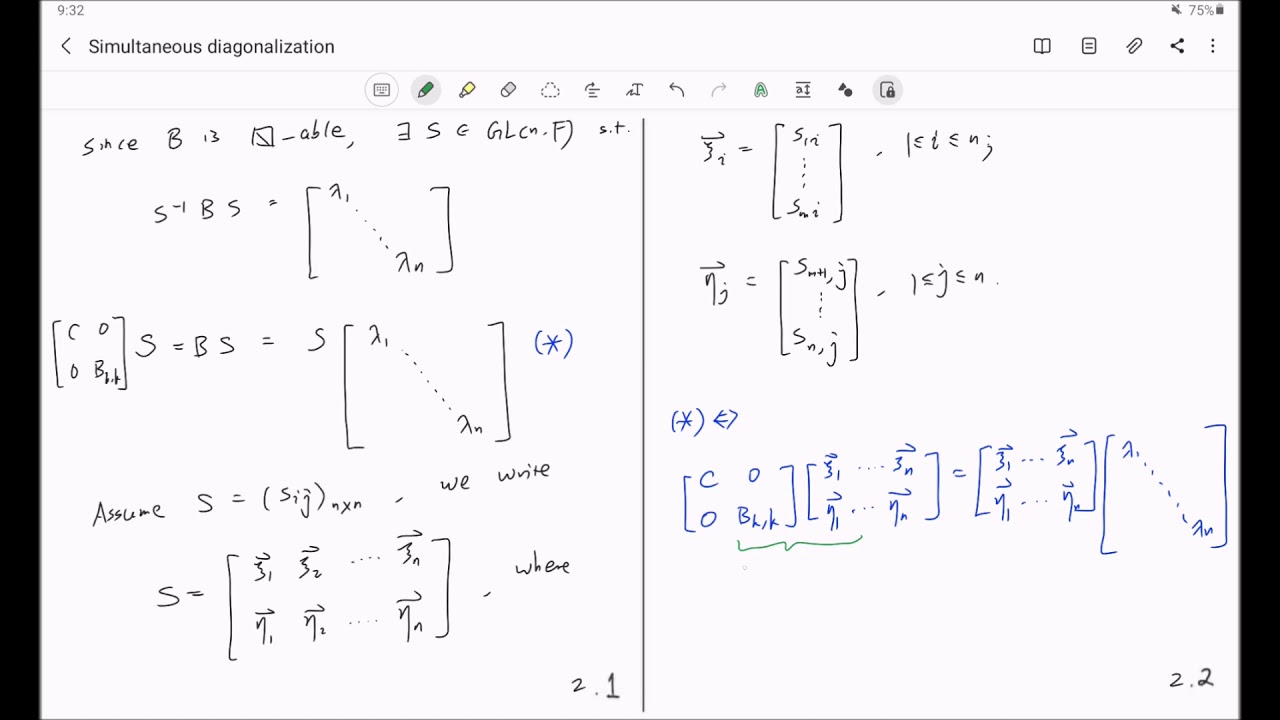 9:32
75%
Simultaneous diagonalization
since B is ⍂-able, ∃ S ∈ GL(n.F) s.t.
S⁻¹ B S = [λ₁ ⋱ λn]
[C 0
0 Bk,k] S = B S = S [λ₁ ⋱ λn] (*)
Assume S = (sij)n×n , we write
S = [ξ⃗₁ ξ⃗₂ ···· ξ⃗n
η⃗₁ η⃗₂ ···· η⃗n] , where
2.1
ξ⃗i = [s1i ⋮ smi] , 1 ≤ i ≤ nj
η⃗j = [Sm+1,j ⋮ Sn,j] , 1 ≤ j ≤ n.
(*) ⇔
[C 0
0 Bk,k] [ξ⃗₁ ···· ξ⃗n
η⃗₁ ··· η⃗n] = [ξ⃗₁ ··· ξ⃗n
η⃗₁ ··· η⃗n] [λ₁ ⋱ λn]
2.2